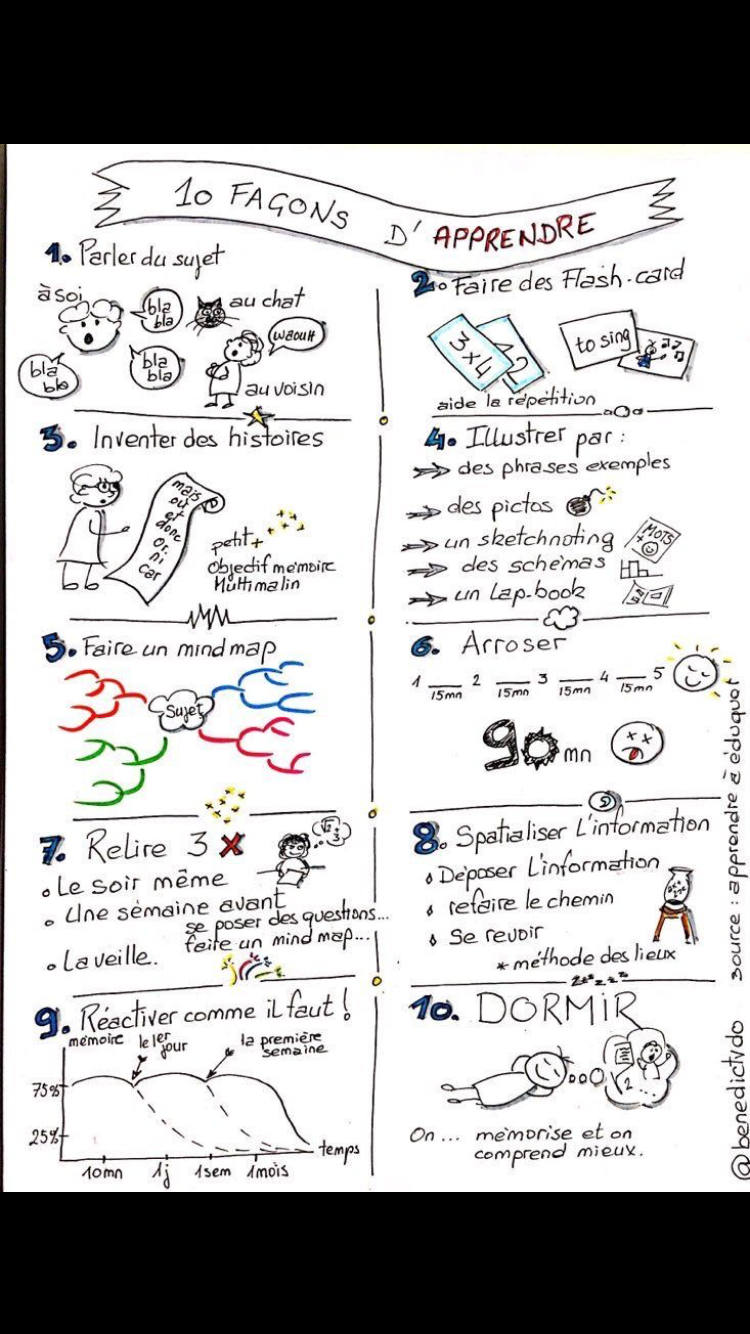 10 FAÇONS D'APPRENDRE
1. Parler du sujet
à soi
bla bla
au chat
waouh
bla bla
bla bla
au voisin
2. Faire des Flash-card
3x4
12
to sing
aide la répétition
3. Inventer des histoires
mais
où
et
donc
or.
ni
car
petit +
Objectif mémoire
Multimalin
4. Illustrer par :
des phrases exemples
des pictos
un sketchnoting
MOTS
+
des schémas
un Lap-book
5. Faire un mind map
Sujet
6. Arroser
1 15mn 2 15mn 3 15mn 4 15mn 5
90 mn
7. Relire 3 x
• Le soir même
• Une semaine avant
se poser des questions...
faite un mind map...
• La veille..
8. Spatialiser L'information
Déposer L'information
refaire le chemin
Se revoir
* méthode des lieux
9. Réactiver comme il faut !
mémoire
le 1er jour
la première semaine
75%
25%
temps
10mn 1j 1sem 1mois
zzz z z zz
10. DORMIR
2
On ... mémorise et on
comprend mieux.
@benedictvdo source : apprendre à éduquer